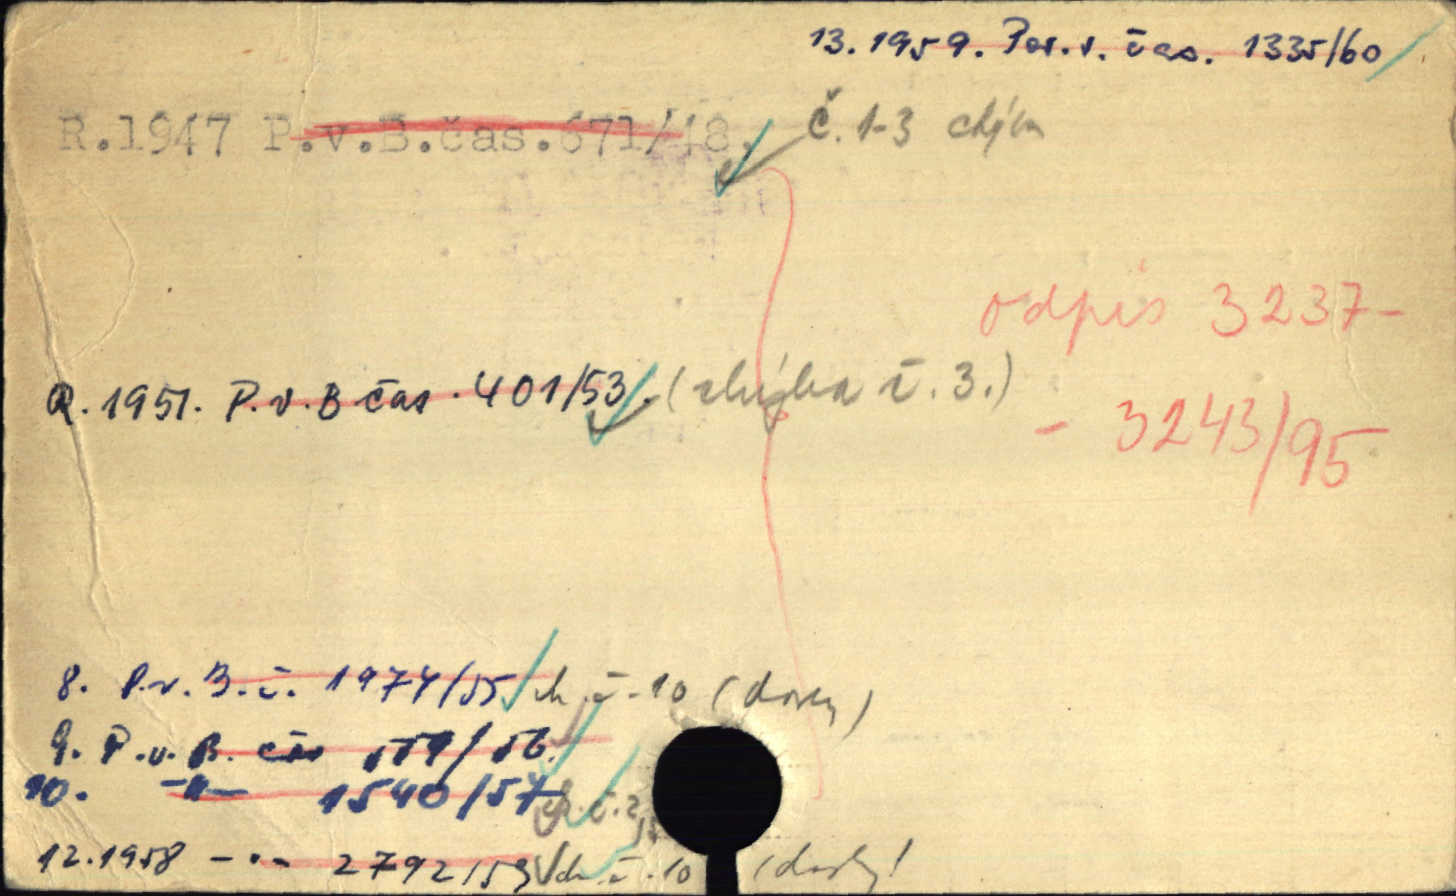 13.1959. Por. v. čas. 1335/60
R.1947 P.v.B.čas.671/48. č. 1-3 chýba
odpis 3237-
R. 1951. P. v. B čas. 401/53. (chýba č. 3.)
- 3243/95
8. P.v. B.č. 1974/55 ch. č. 10 (dosky)
9. P.v. B. čas 559/56.
10. -"- 1540/57 ch. č. 2,
12.1958 -"- 2792/59 ch. č. 10 (dosky!